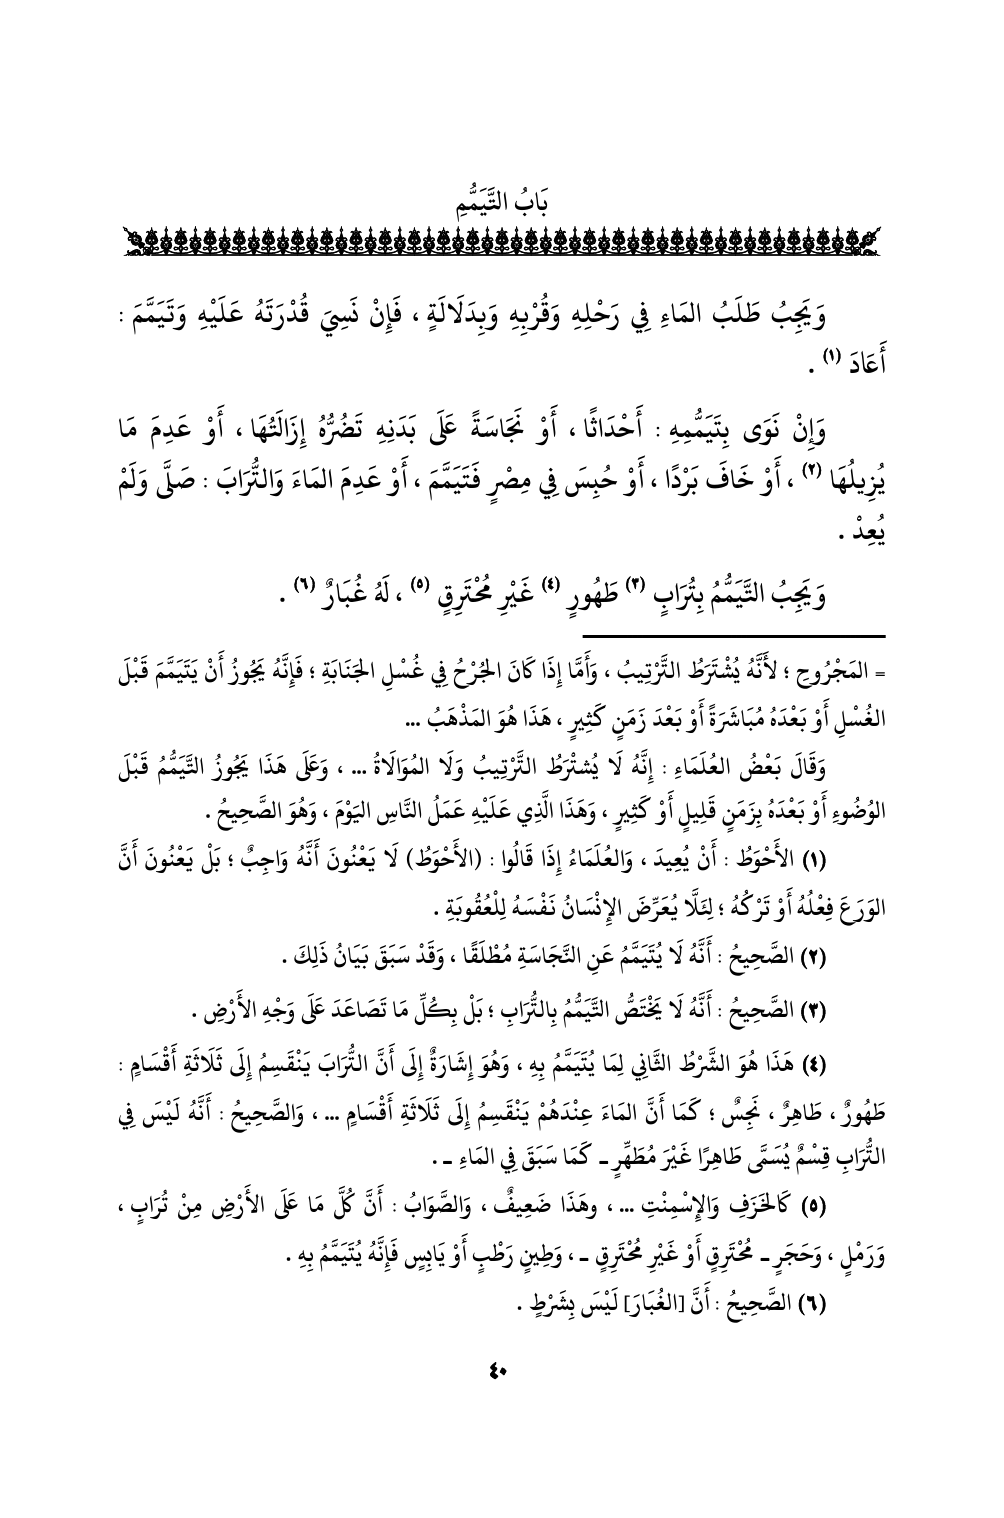 بَابُ التَّيَمُّمِ
وَيَجِبُ طَلَبُ المَاءِ فِي رَحْلِهِ وَقُرْبِهِ وَبِدَلَالَةٍ ، فَإِنْ نَسِيَ قُدْرَتَهُ عَلَيْهِ وَتَيَمَّمَ :
أَعَادَ (١) .
وَإِنْ نَوَى بِتَيَمُّمِهِ : أَحْدَاثًا ، أَوْ نَجَاسَةً عَلَى بَدَنِهِ تَضُرُّهُ إِزَالَتُهَا ، أَوْ عَدِمَ مَا
يُزِيلُهَا (٢) ، أَوْ خَافَ بَرْدًا ، أَوْ حُبِسَ فِي مِصْرٍ فَتَيَمَّمَ ، أَوْ عَدِمَ المَاءَ وَالتُّرَابَ : صَلَّى وَلَمْ
يُعِدْ .
وَيَجِبُ التَّيَمُّمُ بِتُرَابٍ (٣) طَهُورٍ (٤) غَيْرِ مُحْتَرِقٍ (٥) ، لَهُ غُبَارٌ (٦) .
= المَجْرُوحِ ؛ لأَنَّهُ يُشْتَرَطُ التَّرْتِيبُ ، وَأَمَّا إِذَا كَانَ الجُرْحُ فِي غُسْلِ الجَنَابَةِ ؛ فَإِنَّهُ يَجُوزُ أَنْ يَتَيَمَّمَ قَبْلَ
الغُسْلِ أَوْ بَعْدَهُ مُبَاشَرَةً أَوْ بَعْدَ زَمَنٍ كَثِيرٍ ، هَذَا هُوَ المَذْهَبُ ...
وَقَالَ بَعْضُ العُلَمَاءِ : إِنَّهُ لَا يُشتْرَطُ التَّرْتِيبُ وَلَا المُوَالَاةُ ... ، وَعَلَى هَذَا يَجُوزُ التَّيَمُّمُ قَبْلَ
الوُضُوءِ أَوْ بَعْدَهُ بِزَمَنٍ قَلِيلٍ أَوْ كَثِيرٍ ، وَهَذَا الَّذِي عَلَيْهِ عَمَلُ النَّاسِ اليَوْمَ ، وَهُوَ الصَّحِيحُ .
(١) الأَحْوَطُ : أَنْ يُعِيدَ ، وَالعُلَمَاءُ إِذَا قَالُوا : (الأَحْوَطُ) لَا يَعْنُونَ أَنَّهُ وَاجِبٌ ؛ بَلْ يَعْنُونَ أَنَّ
الوَرَعَ فِعْلُهُ أَوْ تَرْكُهُ ؛ لِئَلَّا يُعَرِّضَ الإِنْسَانُ نَفْسَهُ لِلْعُقُوبَةِ .
(٢) الصَّحِيحُ : أَنَّهُ لَا يُتَيَمَّمُ عَنِ النَّجَاسَةِ مُطْلَقًا ، وَقَدْ سَبَقَ بَيَانُ ذَلِكَ .
(٣) الصَّحِيحُ : أَنَّهُ لَا يَخْتَصُّ التَّيَمُّمُ بِالتُّرَابِ ؛ بَلْ بِكُلِّ مَا تَصَاعَدَ عَلَى وَجْهِ الأَرْضِ .
(٤) هَذَا هُوَ الشَّرْطُ الثَّانِي لِمَا يُتَيَمَّمُ بِهِ ، وَهُوَ إِشَارَةٌ إِلَى أَنَّ التُّرَابَ يَنْقَسِمُ إِلَى ثَلَاثَةِ أَقْسَامٍ :
طَهُورٌ ، طَاهِرٌ ، نَجِسٌ ؛ كَمَا أَنَّ المَاءَ عِنْدَهُمْ يَنْقَسِمُ إِلَى ثَلَاثَةِ أَقْسَامٍ ... ، وَالصَّحِيحُ : أَنَّهُ لَيْسَ فِي
التُّرَابِ قِسْمٌ يُسَمَّى طَاهِرًا غَيْرَ مُطَهِّرٍ ـ كَمَا سَبَقَ فِي المَاءِ ـ .
(٥) كَالخَزَفِ وَالإِسْمِنْتِ ... ، وهَذَا ضَعِيفٌ ، وَالصَّوَابُ : أَنَّ كُلَّ مَا عَلَى الأَرْضِ مِنْ تُرَابٍ ،
وَرَمْلٍ ، وَحَجَرٍ ـ مُحْتَرِقٍ أَوْ غَيْرِ مُحْتَرِقٍ ـ ، وَطِينٍ رَطْبٍ أَوْ يَابِسٍ فَإِنَّهُ يُتَيَمَّمُ بِهِ .
(٦) الصَّحِيحُ : أَنَّ [الغُبَارَ] لَيْسَ بِشَرْطٍ .
٤٠